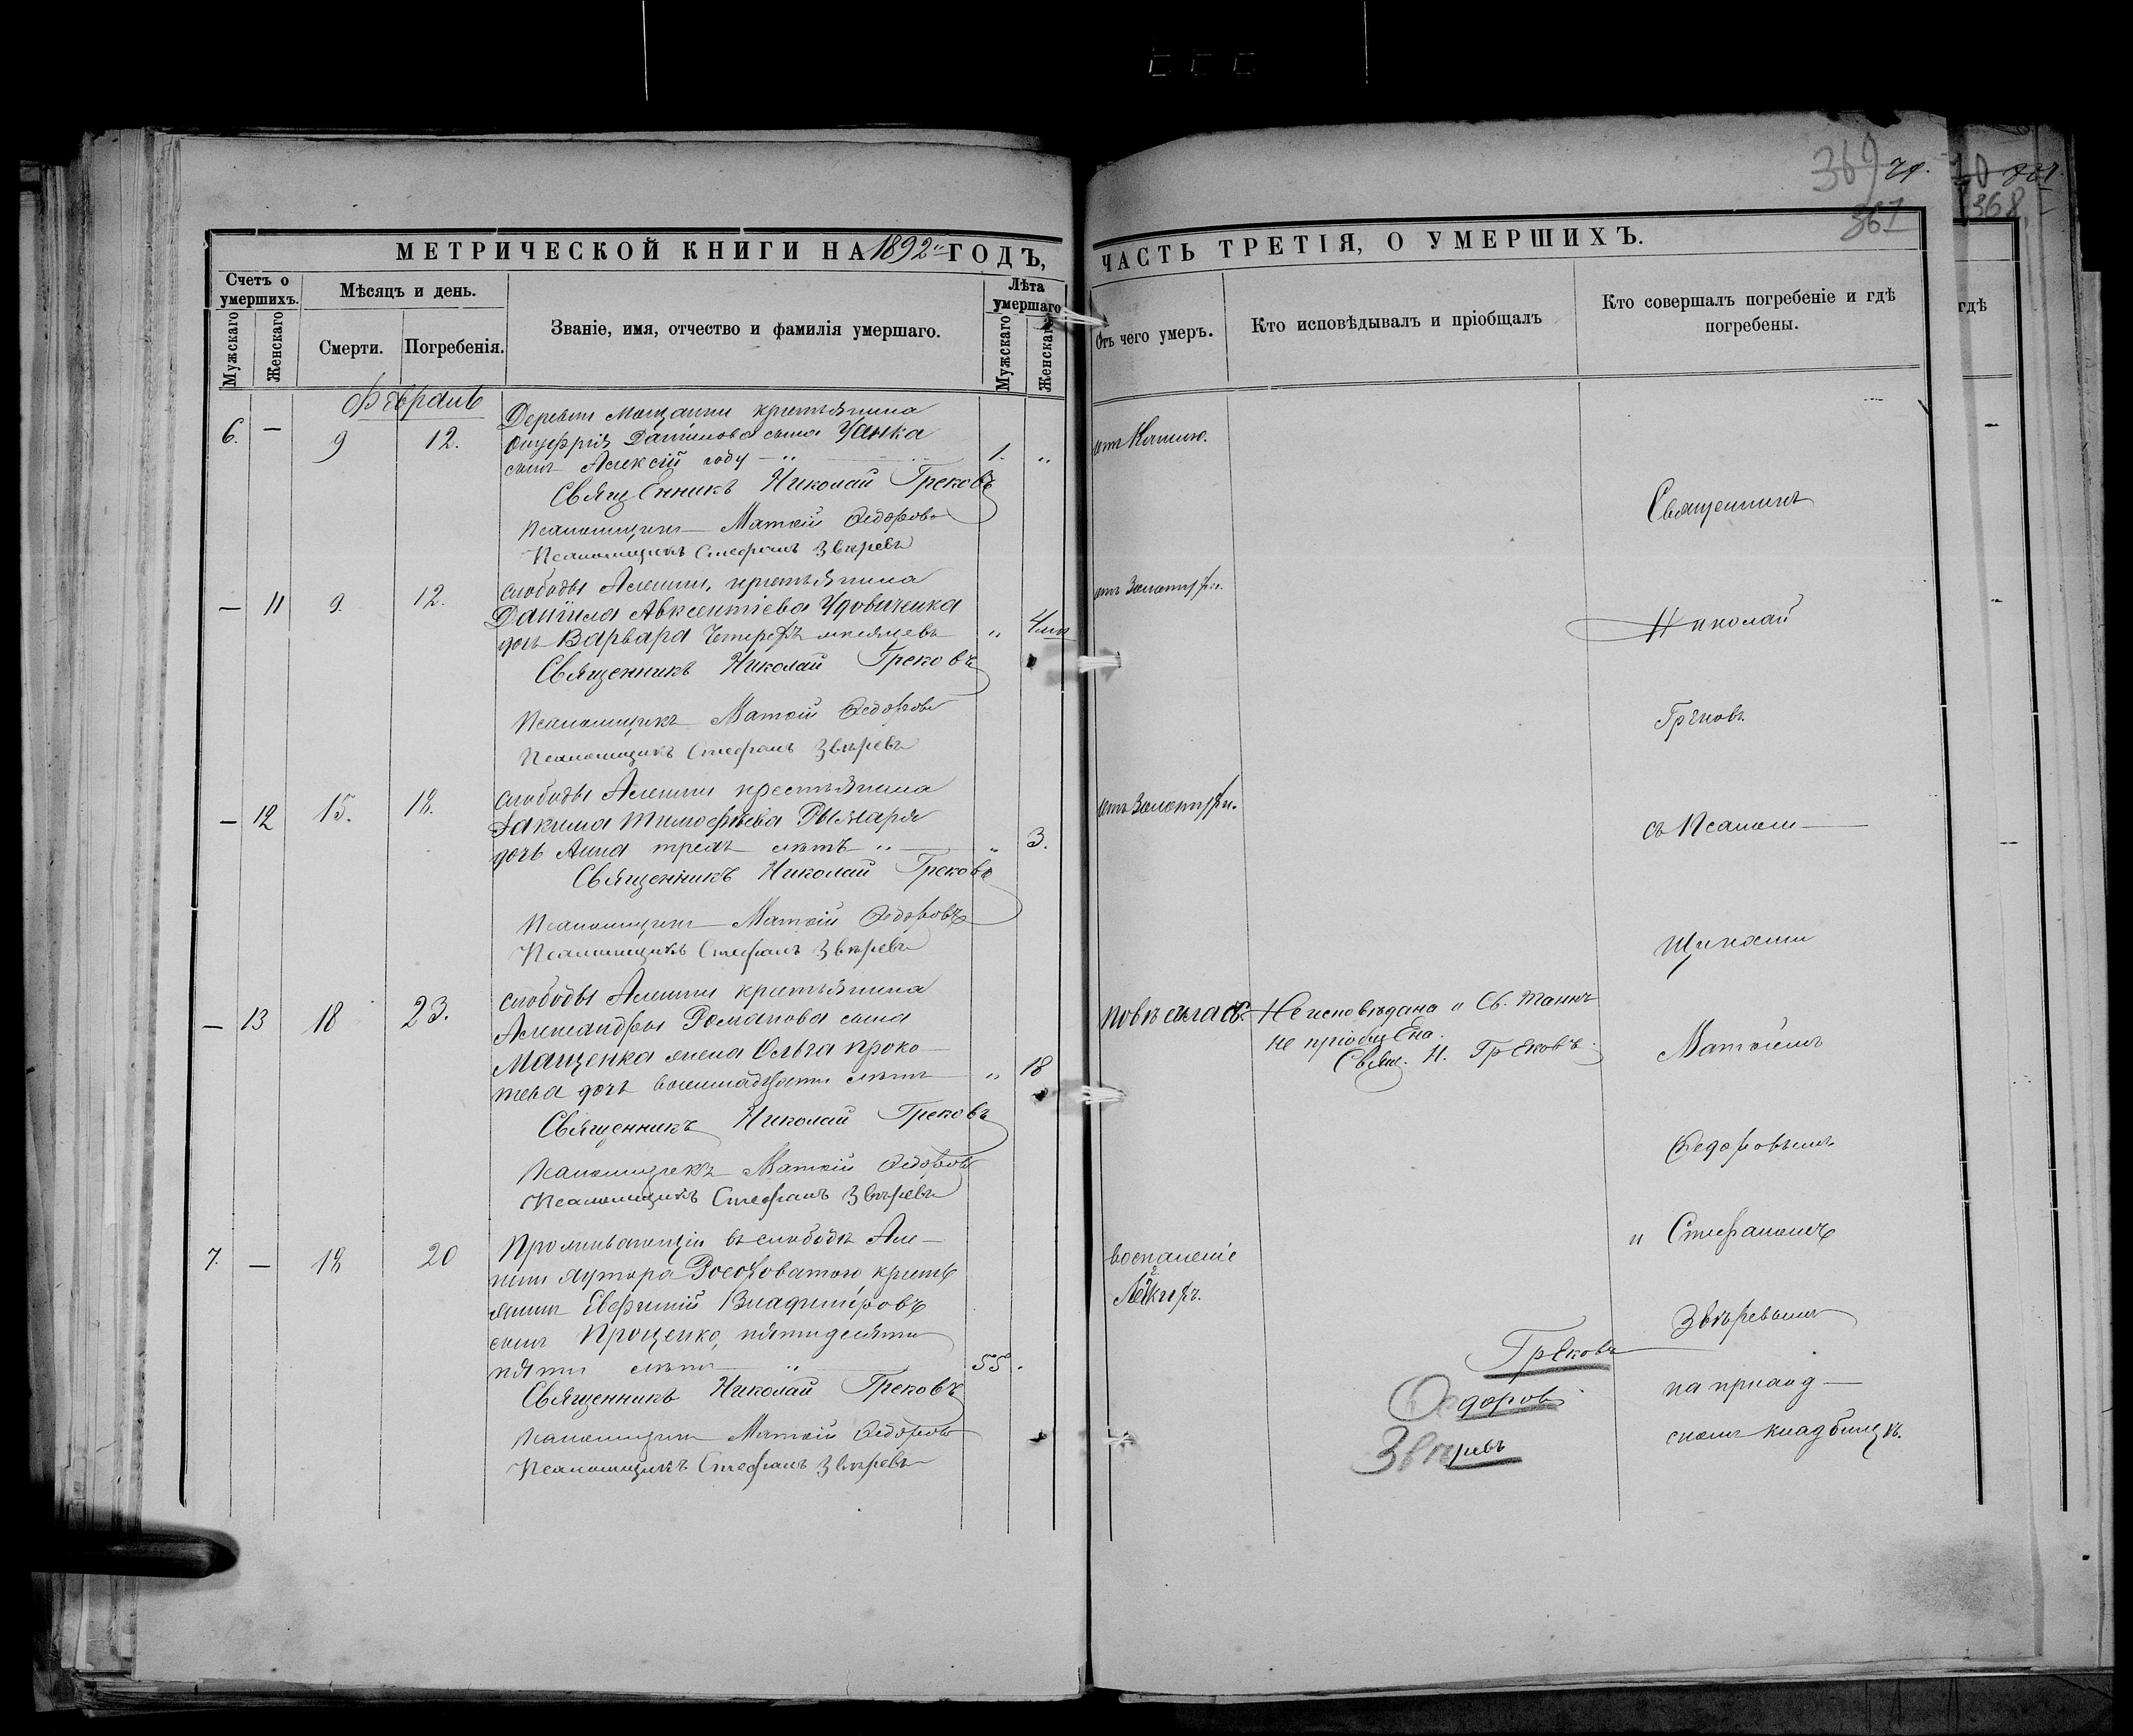 369 71.
367
368
МЕТРИЧЕСКОЙ КНИГИ НА 1892й ГОДЪ,
Счетъ о умершихъ.
Мужскаго
Женскаго
Мѣсяцъ и день.
Смерти.
Погребенія.
Званіе, имя, отчество и фамилія умершаго.
Лѣта умершаго
Мужскаго
Женскаго
Февраль
6. — 9 12.
крестьянина
Даніилова сына
сынъ Алексій году — 1. „
Священникъ Николай Грековъ
Псаломщикъ Матѳій Ѳедоровъ
Псаломщикъ Стефанъ Звѣревъ
— 11 9. 12.
слободы крестьянина
Даніила Авксентіева Удовиченка
дочь Варвара четырехъ мѣсяцевъ „ 4 мѣс
Священникъ Николай Грековъ
Псаломщикъ Матѳій Ѳедоровъ
Псаломщикъ Стефанъ Звѣревъ
— 12 15. 18.
слободы крестьянина
Іакима Тимофѣева Рымаря
дочь Анна трехъ лѣтъ „ — „ 3.
Священникъ Николай Грековъ
Псаломщикъ Матѳій Ѳедоровъ
Псаломщикъ Стефанъ Звѣревъ
— 13 18 23.
слободы крестьянина
Александра Романова сына
Мащенка жена Ольга Проко—
пьева дочь восемнадцати лѣтъ „ 18
Священникъ Николай Грековъ
Псаломщикъ Матѳій Ѳедоровъ
Псаломщикъ Стефанъ Звѣревъ
7. — 18 20
Проживающій въ слободѣ
хутора Росоховатого кресть
янинъ Евфимій Владиміровъ
сынъ Проценко, пятидесяти
пяти лѣтъ „ 55.
Священникъ Николай Грековъ
Псаломщикъ Матѳій Ѳедоровъ
Псаломщикъ Стефанъ Звѣревъ
ЧАСТЬ ТРЕТІЯ, О УМЕРШИХЪ.
Отъ чего умеръ.
Кто исповѣдывалъ и пріобщалъ
Кто совершалъ погребеніе и гдѣ погребены.
гдѣ
отъ Кашлю.
отъ Золотухи.
отъ Золотухи.
Не исповѣдана и Св. Таинъ
не пріобщена.
Свящ. Н. Грековъ.
воспаленіе
Легкихъ.
Священникъ
Николай
Грековъ
съ Псалом—
щиками
Матѳіемъ
Ѳедоровымъ
и Стефаномъ
Звѣревымъ
на приход—
скомъ кладбищѣ.
Грековъ
Ѳедоровъ
Звѣревъ